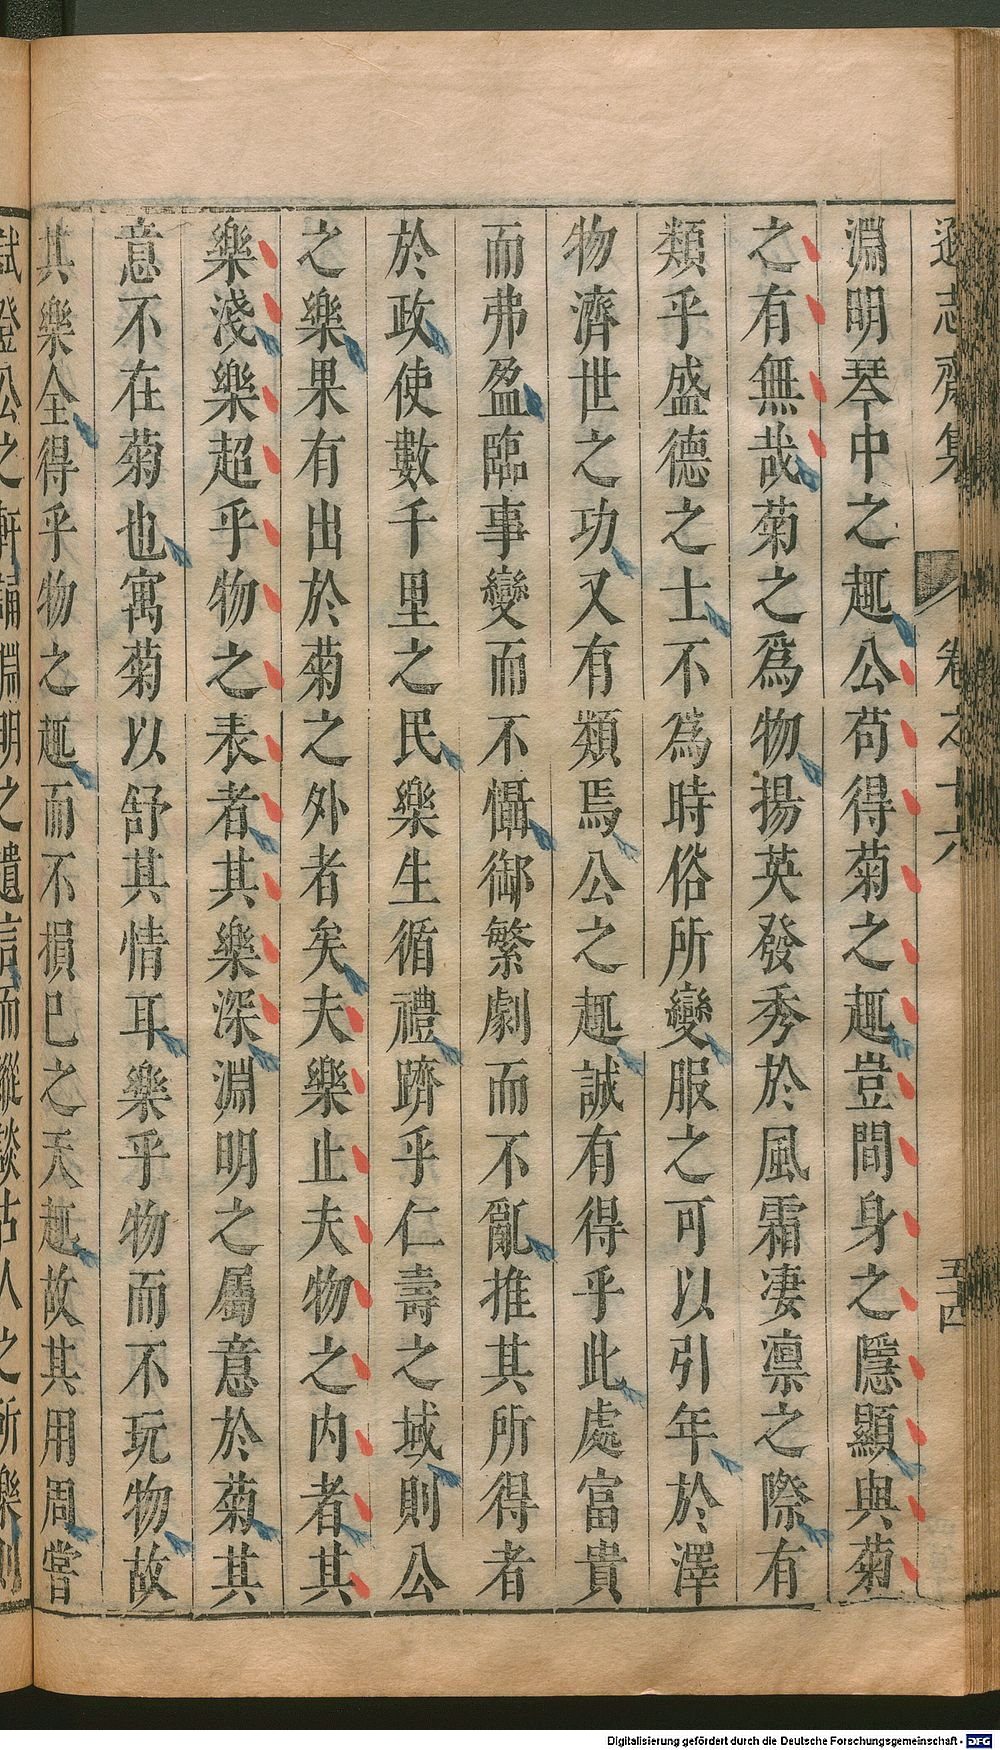 遜志齋集 卷之十六 五十四
淵明琴中之趣公苟得菊之趣豈間身之隱顯與菊
之有無哉菊之爲物揚英發秀於風霜凄凛之際有
類乎盛德之士不爲時俗所變服之可以引年於澤
物濟世之功又有類焉公之趣誠有得乎此處富貴
而弗盈臨事變而不懾御繁劇而不亂推其所得者
於政使數千里之民樂生循禮躋乎仁壽之域則公
之樂果有出於菊之外者矣夫樂止夫物之内者其
樂淺樂超乎物之表者其樂深淵明之屬意於菊其
意不在菊也寓菊以舒其情耳樂乎物而不玩物故
其樂全得乎物之趣而不損已之天趣故其用周嘗
試登公之軒誦淵明之遺言而縱談古人之所樂則
Digitalisierung gefördert durch die Deutsche Forschungsgemeinschaft - DFG